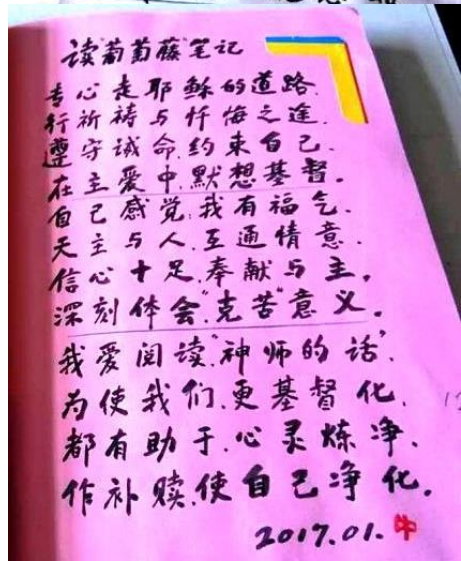 读"葡萄藤"笔记
专心走耶稣的道路.
行祈祷与忏悔之途.
遵守诫命.约束自己.
在主爱中.默想基督.
自己感觉:我有福气.
天主与人.互通情意.
信心十足.奉献与主.
深刻体会"克苦"意义.
我爱阅读"神师的话".
为使我们.更基督化.
都有助于.心灵炼净.
作补赎.使自己净化.
2017.01.